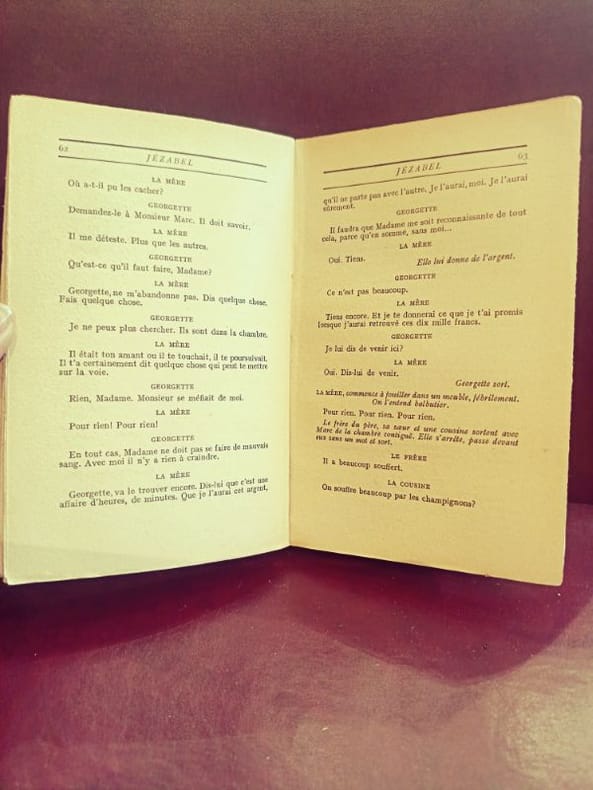 62
JÉZABEL
LA MÈRE
Où a-t-il pu les cacher?
GEORGETTE
Demandez-le à Monsieur Marc. Il doit savoir.
LA MÈRE
Il me déteste. Plus que les autres.
GEORGETTE
Qu'est-ce qu'il faut faire, Madame?
LA MÈRE
Georgette, ne m'abandonne pas. Dis quelque chose.
Fais quelque chose.
GEORGETTE
Je ne peux plus chercher. Ils sont dans la chambre.
LA MÈRE
Il était ton amant ou il te touchait, il te poursuivait.
Il t'a certainement dit quelque chose qui peut te mettre
sur la voie.
GEORGETTE
Rien, Madame. Monsieur se méfiait de moi.
LA MÈRE
Pour rien! Pour rien!
GEORGETTE
En tout cas, Madame ne doit pas se faire de mauvais
sang. Avec moi il n'y a rien à craindre.
LA MÈRE
Georgette, va le trouver encore. Dis-lui que c'est une
affaire d'heures, de minutes. Que je l'aurai cet argent,
JÉZABEL
63
qu'il ne parte pas avec l'autre. Je l'aurai, moi. Je l'aurai
sûrement.
GEORGETTE
Il faudra que Madame me soit reconnaissante de tout
cela, parce qu'en somme, sans moi...
LA MÈRE
Oui. Tiens.
Elle lui donne de l'argent.
GEORGETTE
Ce n'est pas beaucoup.
LA MÈRE
Tiens encore. Et je te donnerai ce que je t'ai promis
lorsque j'aurai retrouvé ces dix mille francs.
GEORGETTE
Je lui dis de venir ici?
LA MÈRE
Oui. Dis-lui de venir.
Georgette sort.
LA MÈRE, commence à fouiller dans un meuble, fébrilement.
On l'entend balbutier.
Pour rien. Pour rien. Pour rien.
Le frère du père, sa sœur et une cousine sortent avec
Marc de la chambre contiguë. Elle s'arrête, passe devant
eux sans un mot et sort.
LE FRÈRE
Il a beaucoup souffert.
LA COUSINE
On souffre beaucoup par les champignons?